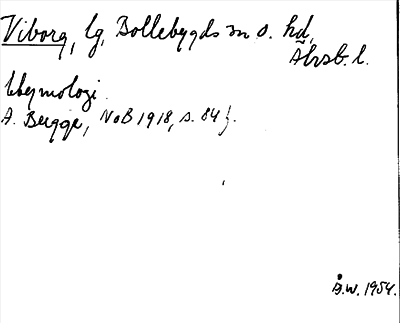 Viborg, lg, Bollebygds sn o. hd,
Älvsb. l.
Etymologi.
A. Bugge, NoB 1918, s. 84 f.
Å.W. 1954.